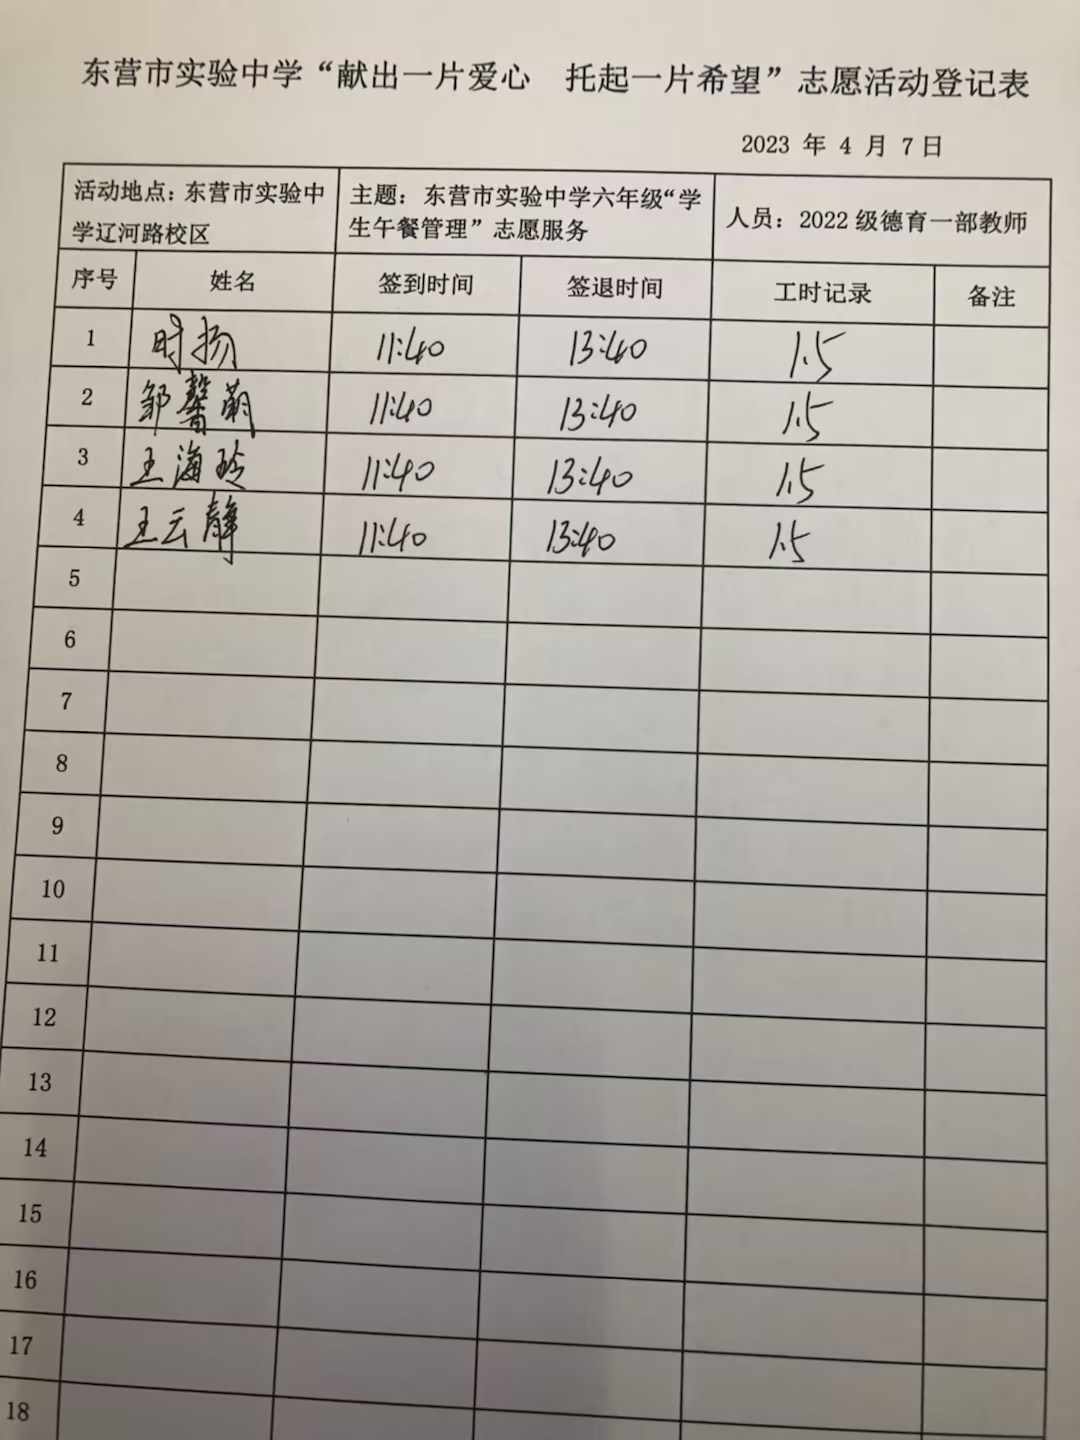 东营市实验中学“献出一片爱心 托起一片希望”志愿活动登记表
2023 年 4 月 7 日
活动地点：东营市实验中
学辽河路校区
主题：东营市实验中学六年级“学
生午餐管理”志愿服务
人员：2022 级德育一部教师
序号 姓名 签到时间 签退时间 工时记录 备注
1 时扬 11:40 13:40 1.5
2 邹馨萌 11:40 13:40 1.5
3 王海玲 11:40 13:40 1.5
4 王云静 11:40 13:40 1.5
5
6
7
8
9
10
11
12
13
14
15
16
17
18